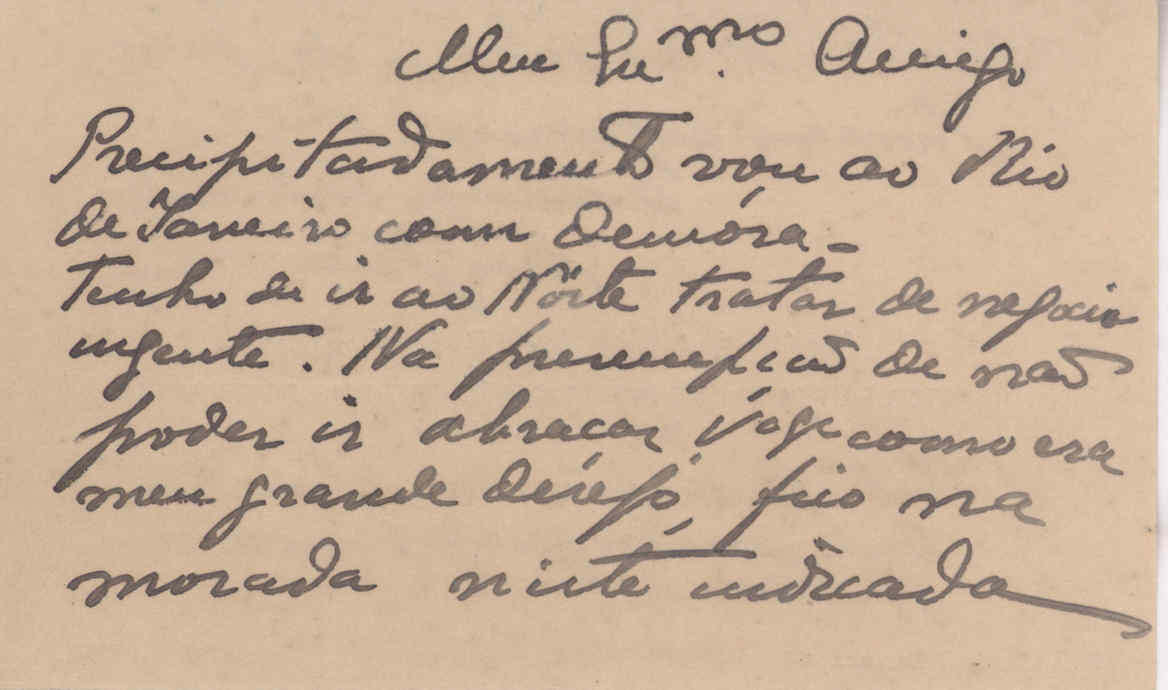 Meu Exmo. Amigo
Precipitadamente vou ao Rio
de Janeiro com demóra -
Tenho de ir ao Nórte tratar de negocio
urgente. Na presumpção de não
poder ir abraçar como era
meu grande desejo, fico na
morada neste indicada